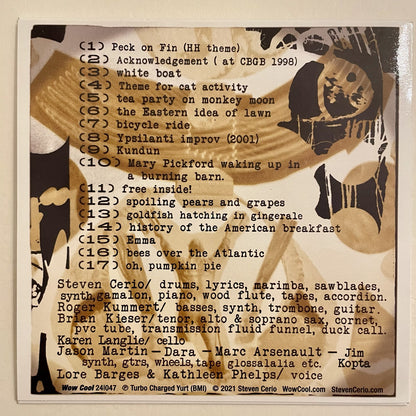 (1) Peck on Fin (HH theme)
(2) Acknowledgement ( at CBGB 1998)
(3) white boat
(4) Theme for cat activity
(5) tea party on monkey moon
(6) the Eastern idea of lawn
(7) bicycle ride
(8) Ypsilanti improv (2001)
(9) Kundun
(10) Mary Pickford waking up in
a burning barn.
(11) free inside!
(12) spoiling pears and grapes
(13) goldfish hatching in gingerale
(14) history of the American breakfast
(15) Emma
(16) bees over the Atlantic
(17) oh, pumpkin pie
Steven Cerio/ drums, lyrics, marimba, sawblades,
synth, gamalon, piano, wood flute, tapes, accordion.
Roger Kummert/ basses, synth, trombone, guitar.
Brian Kieser/ tenor, alto & soprano sax, cornet,
pvc tube, transmission fluid funnel, duck call.
Karen Langlie/ cello
Jason Martin — Dara — Marc Arsenault — Jim
synth, gtrs, wheels, tape glossalalia etc. Kopta
Lore Barges & Kathleen Phelps/ voice
Wow Cool 241047 ℗ Turbo Charged Yurt (BMI) © 2021 Steven Cerio WowCool.com StevenCerio.com